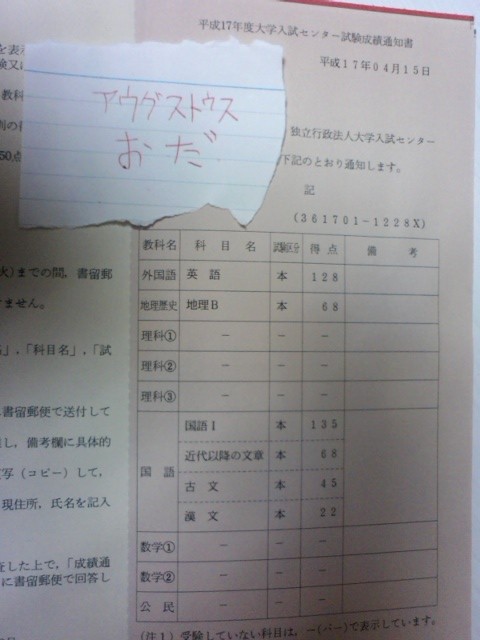 平成17年度大学入試センター試験成績通知書
平成17年04月15日
アウグストゥス
おだ
独立行政法人大学入試センター
下記のとおり通知します。
記
(361701-1228X)
教科名 科目名 試験区分 得点 備考
外国語 英語 本 128
地理歴史 地理B 本 68
理科① － － －
理科② － － －
理科③ － － －
国語 国語Ⅰ 本 135
近代以降の文章 本 68
古文 本 45
漢文 本 22
数学① － － －
数学② － － －
公民 － － －
(注1) 受験していない科目は、－(バー)で表示しています。
を表
教科
別の
50点
火)までの間，書留郵
ません。
」，「科目名」，「試
書留郵便で送付して
し，備考欄に具体的
写（コピー）して，
現住所，氏名を記入
査した上で，「成績通
に書留郵便で回答し